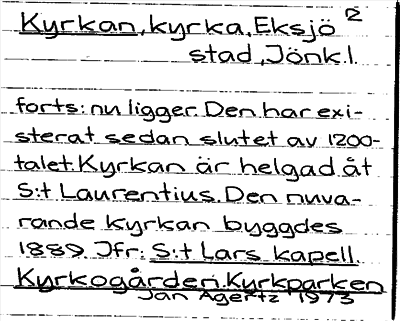 Kyrkan, kyrka, Eksjö 2
stad, Jönk.l.
forts: nu ligger. Den har exi-
sterat sedan slutet av 1200-
talet. Kyrkan är helgad åt
S:t Laurentius. Den nuva-
rande kyrkan byggdes
1889. Jfr: S:t Lars kapell.
Kyrkogården. Kyrkparken
Jan Agertz 1973